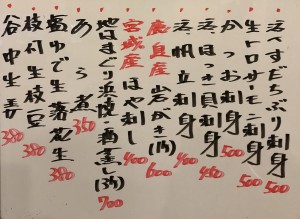 活〆すだちぶり刺身 500
生トロサーモン刺身 500
かつお刺身 500
活ほっき貝刺身 450
活帆立刺身 400
鹿島産 岩かき(1ケ) 600
宮城産 ほや刺し
地はまぐり浜焼・酒蒸し(3ケ) 700
あら煮 350
塩ゆで生落花生 380
枝付生枝豆 380
谷中生姜 380